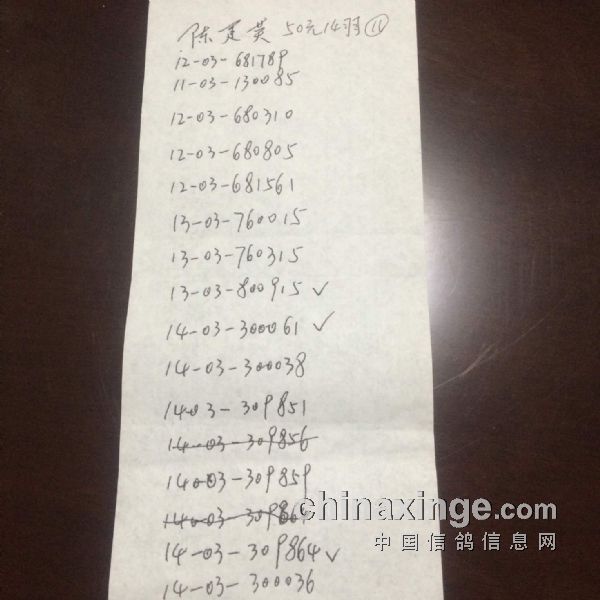 陈足英 50元14羽⑪
12-03-681789
11-03-130085
12-03-680310
12-03-680805
12-03-681561
13-03-760015
13-03-760315
13-03-800915 ✓
14-03-300061 ✓
14-03-300038
1403-309851
14-03-309856
1403-309859
14-03-3098
14-03-309864 ✓
14-03-300036
chinaxinge.com
中国信鸽信息网